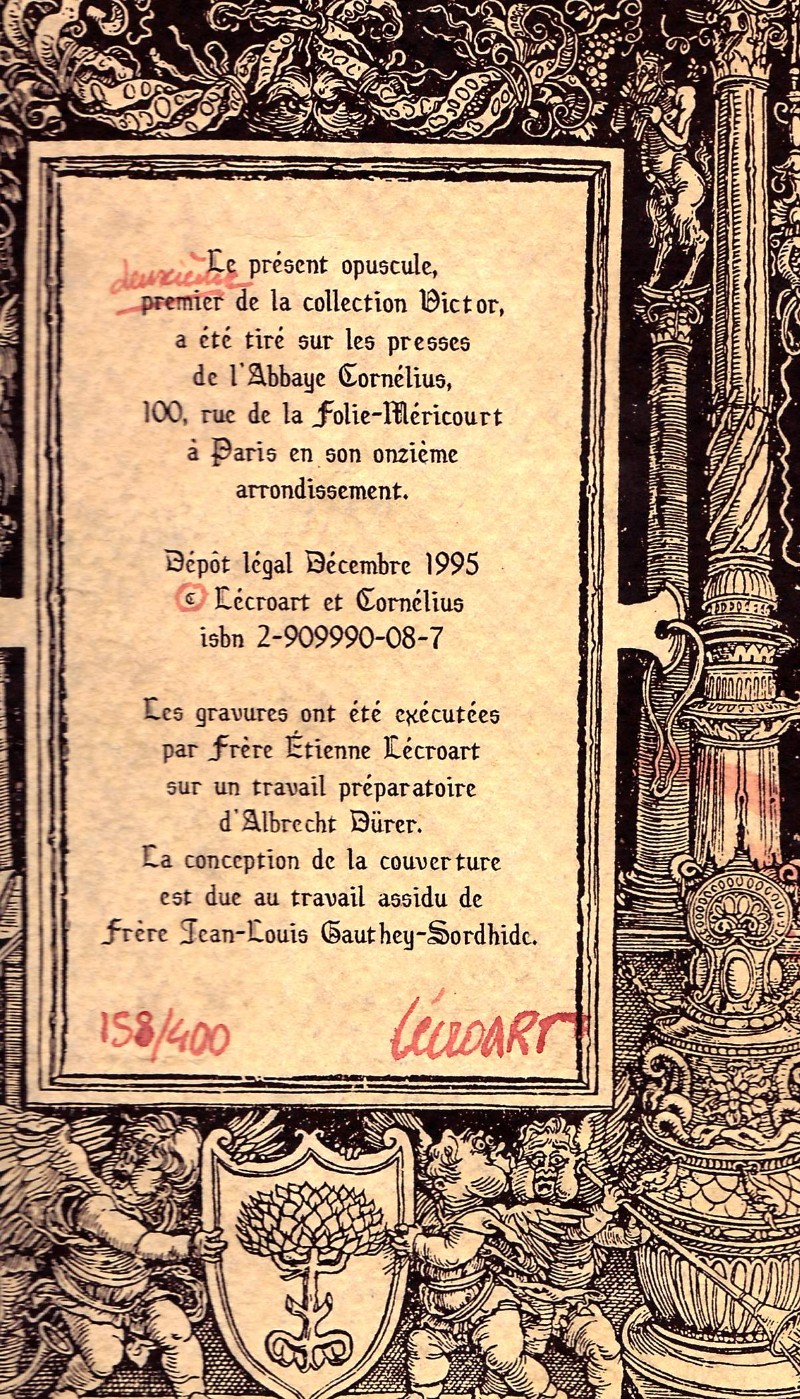 Le présent opuscule,
deuxième
premier de la collection Victor,
a été tiré sur les presses
de l'Abbaye Cornélius,
100, rue de la Folie-Méricourt
à Paris en son onzième
arrondissement.
Dépôt légal Décembre 1995
© Lécroart et Cornélius
isbn 2-909990-08-7
Les gravures ont été exécutées
par Frère Étienne Lécroart
sur un travail préparatoire
d'Albrecht Dürer.
La conception de la couverture
est due au travail assidu de
Frère Jean-Louis Gauthey-Sordhide.
158/400 LécroART